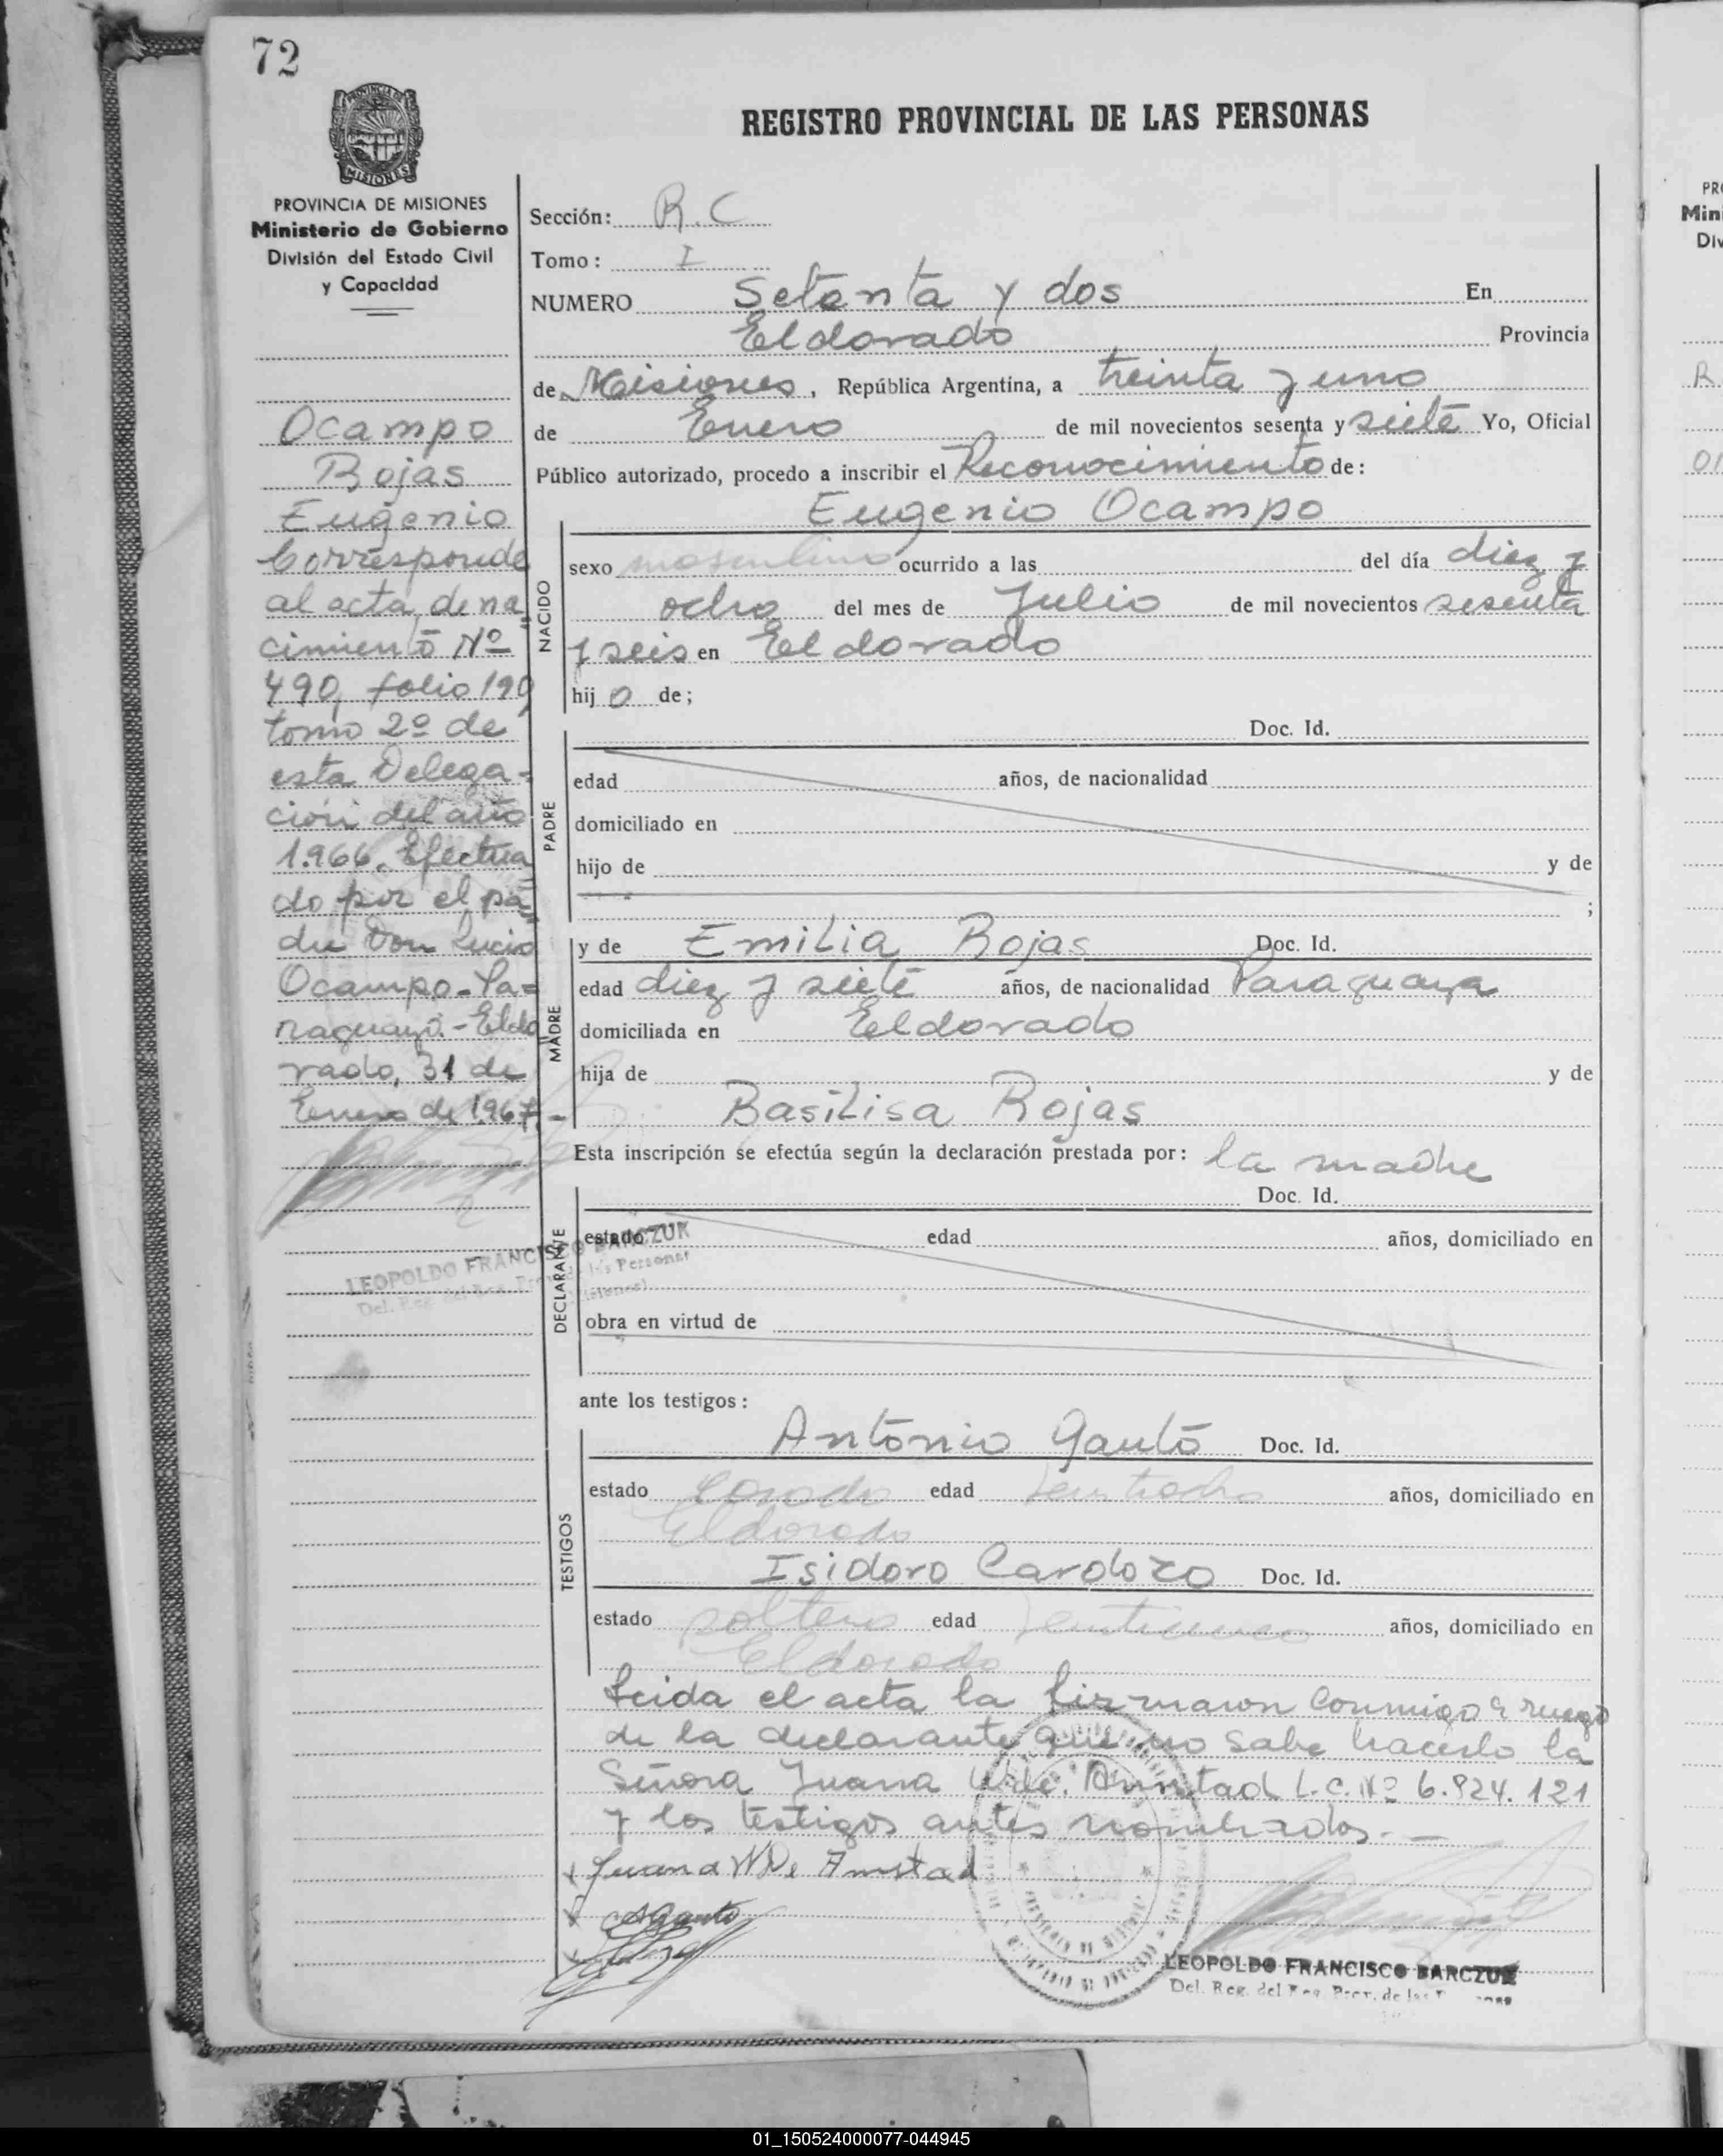 72
REGISTRO PROVINCIAL DE LAS PERSONAS
PROVINCIA DE MISIONES
MISIONES
PROVINCIA DE MISIONES
Ministerio de Gobierno
División del Estado Civil
y Capacidad
Ocampo
Rojas
Eugenio
Corresponde
al acta de na
cimiento Nº
490, folio 190
tomo 2º de
esta Delega-
ción del año
1.966. Efectua
do por el pa
dre Don Lucio
Ocampo-Pa=
raguayo.- Eldo
rado, 31 de
Enero de 1967.-
LEOPOLDO FRANCISCO BARCZUK
Sección: R.C
Tomo: I
NUMERO Setenta y dos En
Eldorado Provincia
de Misiones, República Argentina, a treinta y uno
de Enero de mil novecientos sesenta y siete Yo, Oficial
Público autorizado, procedo a inscribir el Reconocimiento de:
Eugenio Ocampo
NACIDO
sexo masculino ocurrido a las del día diez y
ocho del mes de Julio de mil novecientos sesenta
y seis en Eldorado
hijo de;
PADRE
Doc. Id.
edad años, de nacionalidad
domiciliado en
hijo de y de
;
MADRE
y de Emilia Rojas Doc. Id.
edad diez y siete años, de nacionalidad Paraguaya
domiciliada en Eldorado
hija de y de
Basilisa Rojas
Esta inscripción se efectúa según la declaración prestada por: la madre
DECLARANTE
Doc. Id.
estado edad años, domiciliado en
obra en virtud de
ante los testigos:
TESTIGOS
Antonio Gauto Doc. Id.
estado Casado edad años, domiciliado en
Eldorado
Isidoro Cardozo Doc. Id.
estado soltero edad veinticinco años, domiciliado en
Eldorado
Leida el acta la firmaron conmigo a ruego
de la declarante que no sabe hacerlo la
Señora Juana W.de. Amstad L.C. Nº 6.824.121
y los testigos antes nombrados.-
Juana W De Amstad
AGauto
LEOPOLDO FRANCISCO BARCZUK
Del. Reg. del Reg. Prov. de las
PRO
Min
Div
R
01_150524000077-044945